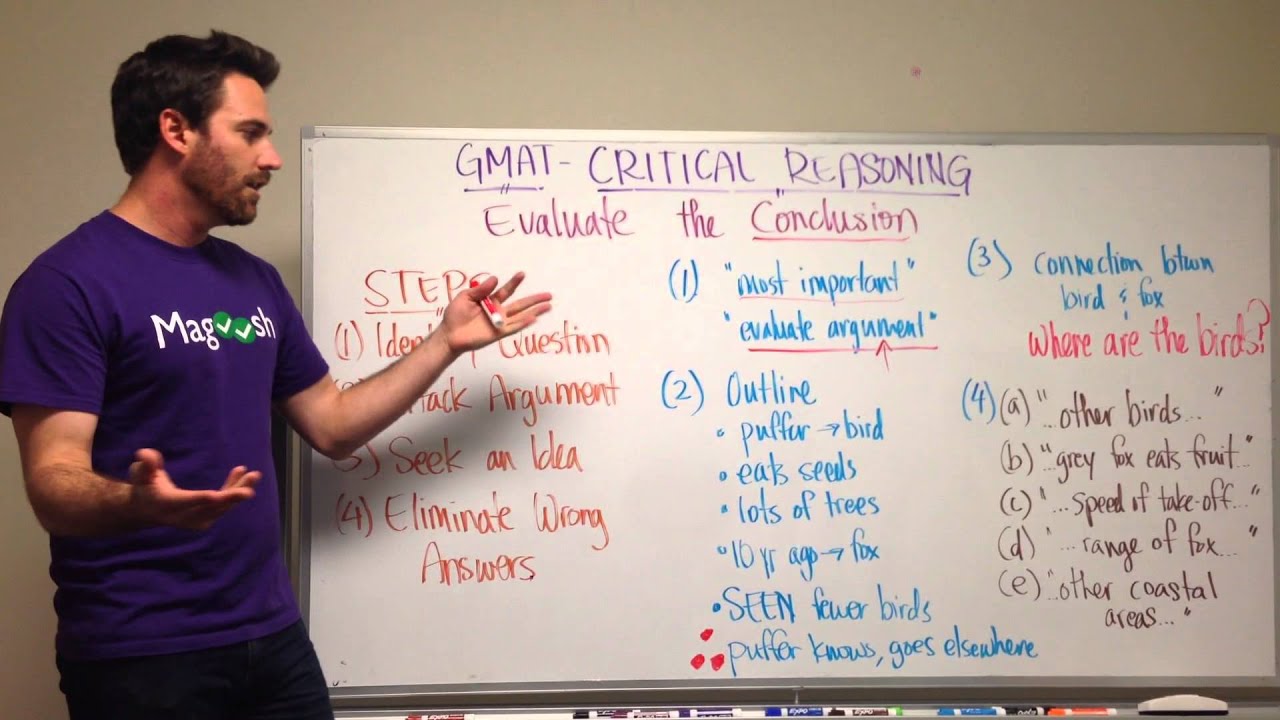 GMAT - CRITICAL REASONING
Evaluate the Conclusion
Magoosh
STEPS
(1) Question
Argument
Seek an Idea
(4) Eliminate Wrong
Answers
(1) "most important"
"evaluate argument"
(2) Outline
• puffer → bird
• eats seeds
• lots of trees
• 10 yr ago → fox
• SEEN fewer birds
∴ puffer knows, goes elsewhere
(3) connection btwn
bird & fox
where are the birds?
(4) (a) "...other birds..."
(b) "...grey fox eats fruit..."
(c) "...speed of take-off..."
(d) "...range of fox..."
(e) "...other coastal
areas..."
EXPO